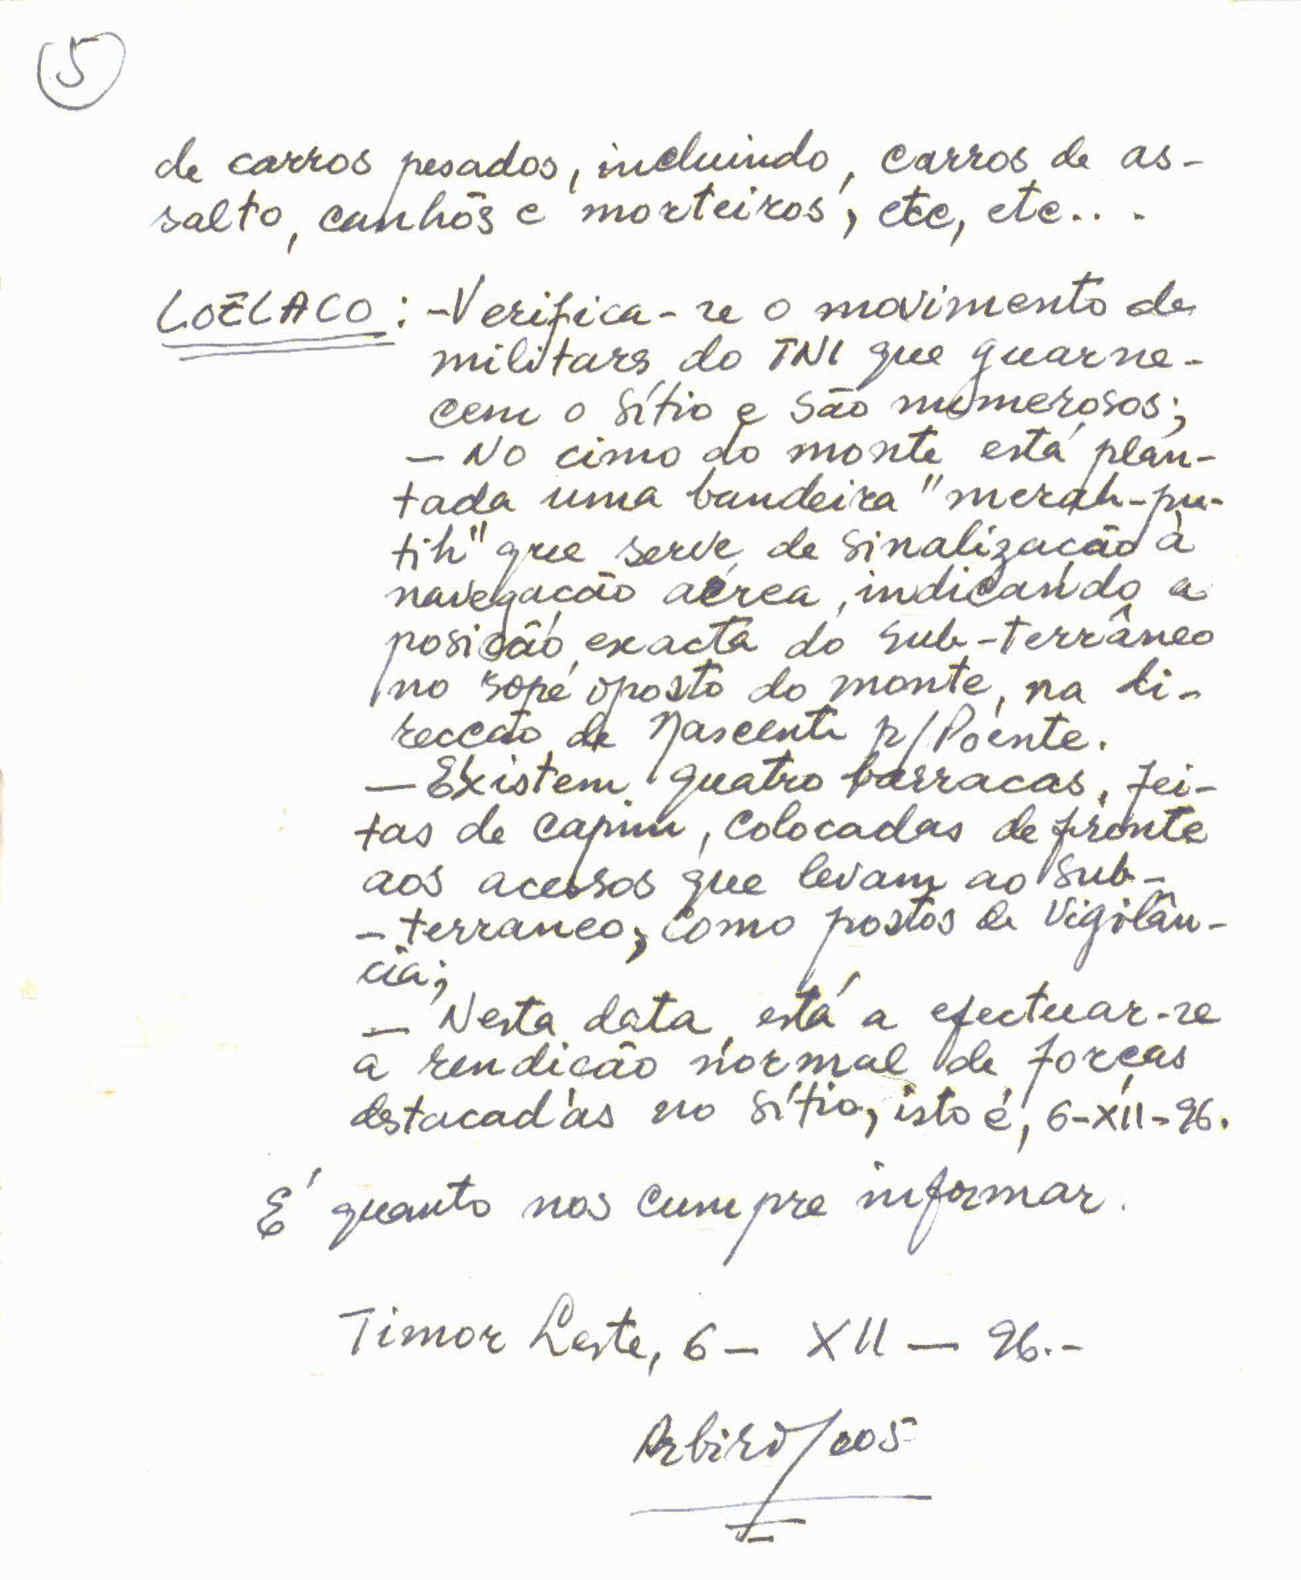 5
de carros pesados, incluindo, carros de as-
salto, canhõs e morteiros, etc, etc...
LOÉLACO: -Verifica-se o movimento de
militars do TNI que guarne-
cem o sítio e são numerosos;
- No cimo do monte está plan-
tada uma bandeira "merah-pu-
tih" que serve de sinalização à
navegação aérea, indicando a
posição exacta do sub-terrâneo
no sopé oposto do monte, na di-
recção de Nascente p/Poente.
- Existem quatro barracas, fei-
tas de capim, colocadas de fronte
aos acessos que levam ao sub-
-terraneo, como postos de Vigilân-
cia;
- Nesta data, está a efectuar-se
a rendição normal de forças
destacadas no sítio, isto é, 6-XII-96.
É quanto nos cumpre informar.
Timor Leste, 6- XII - 96.-
Arbirú/005